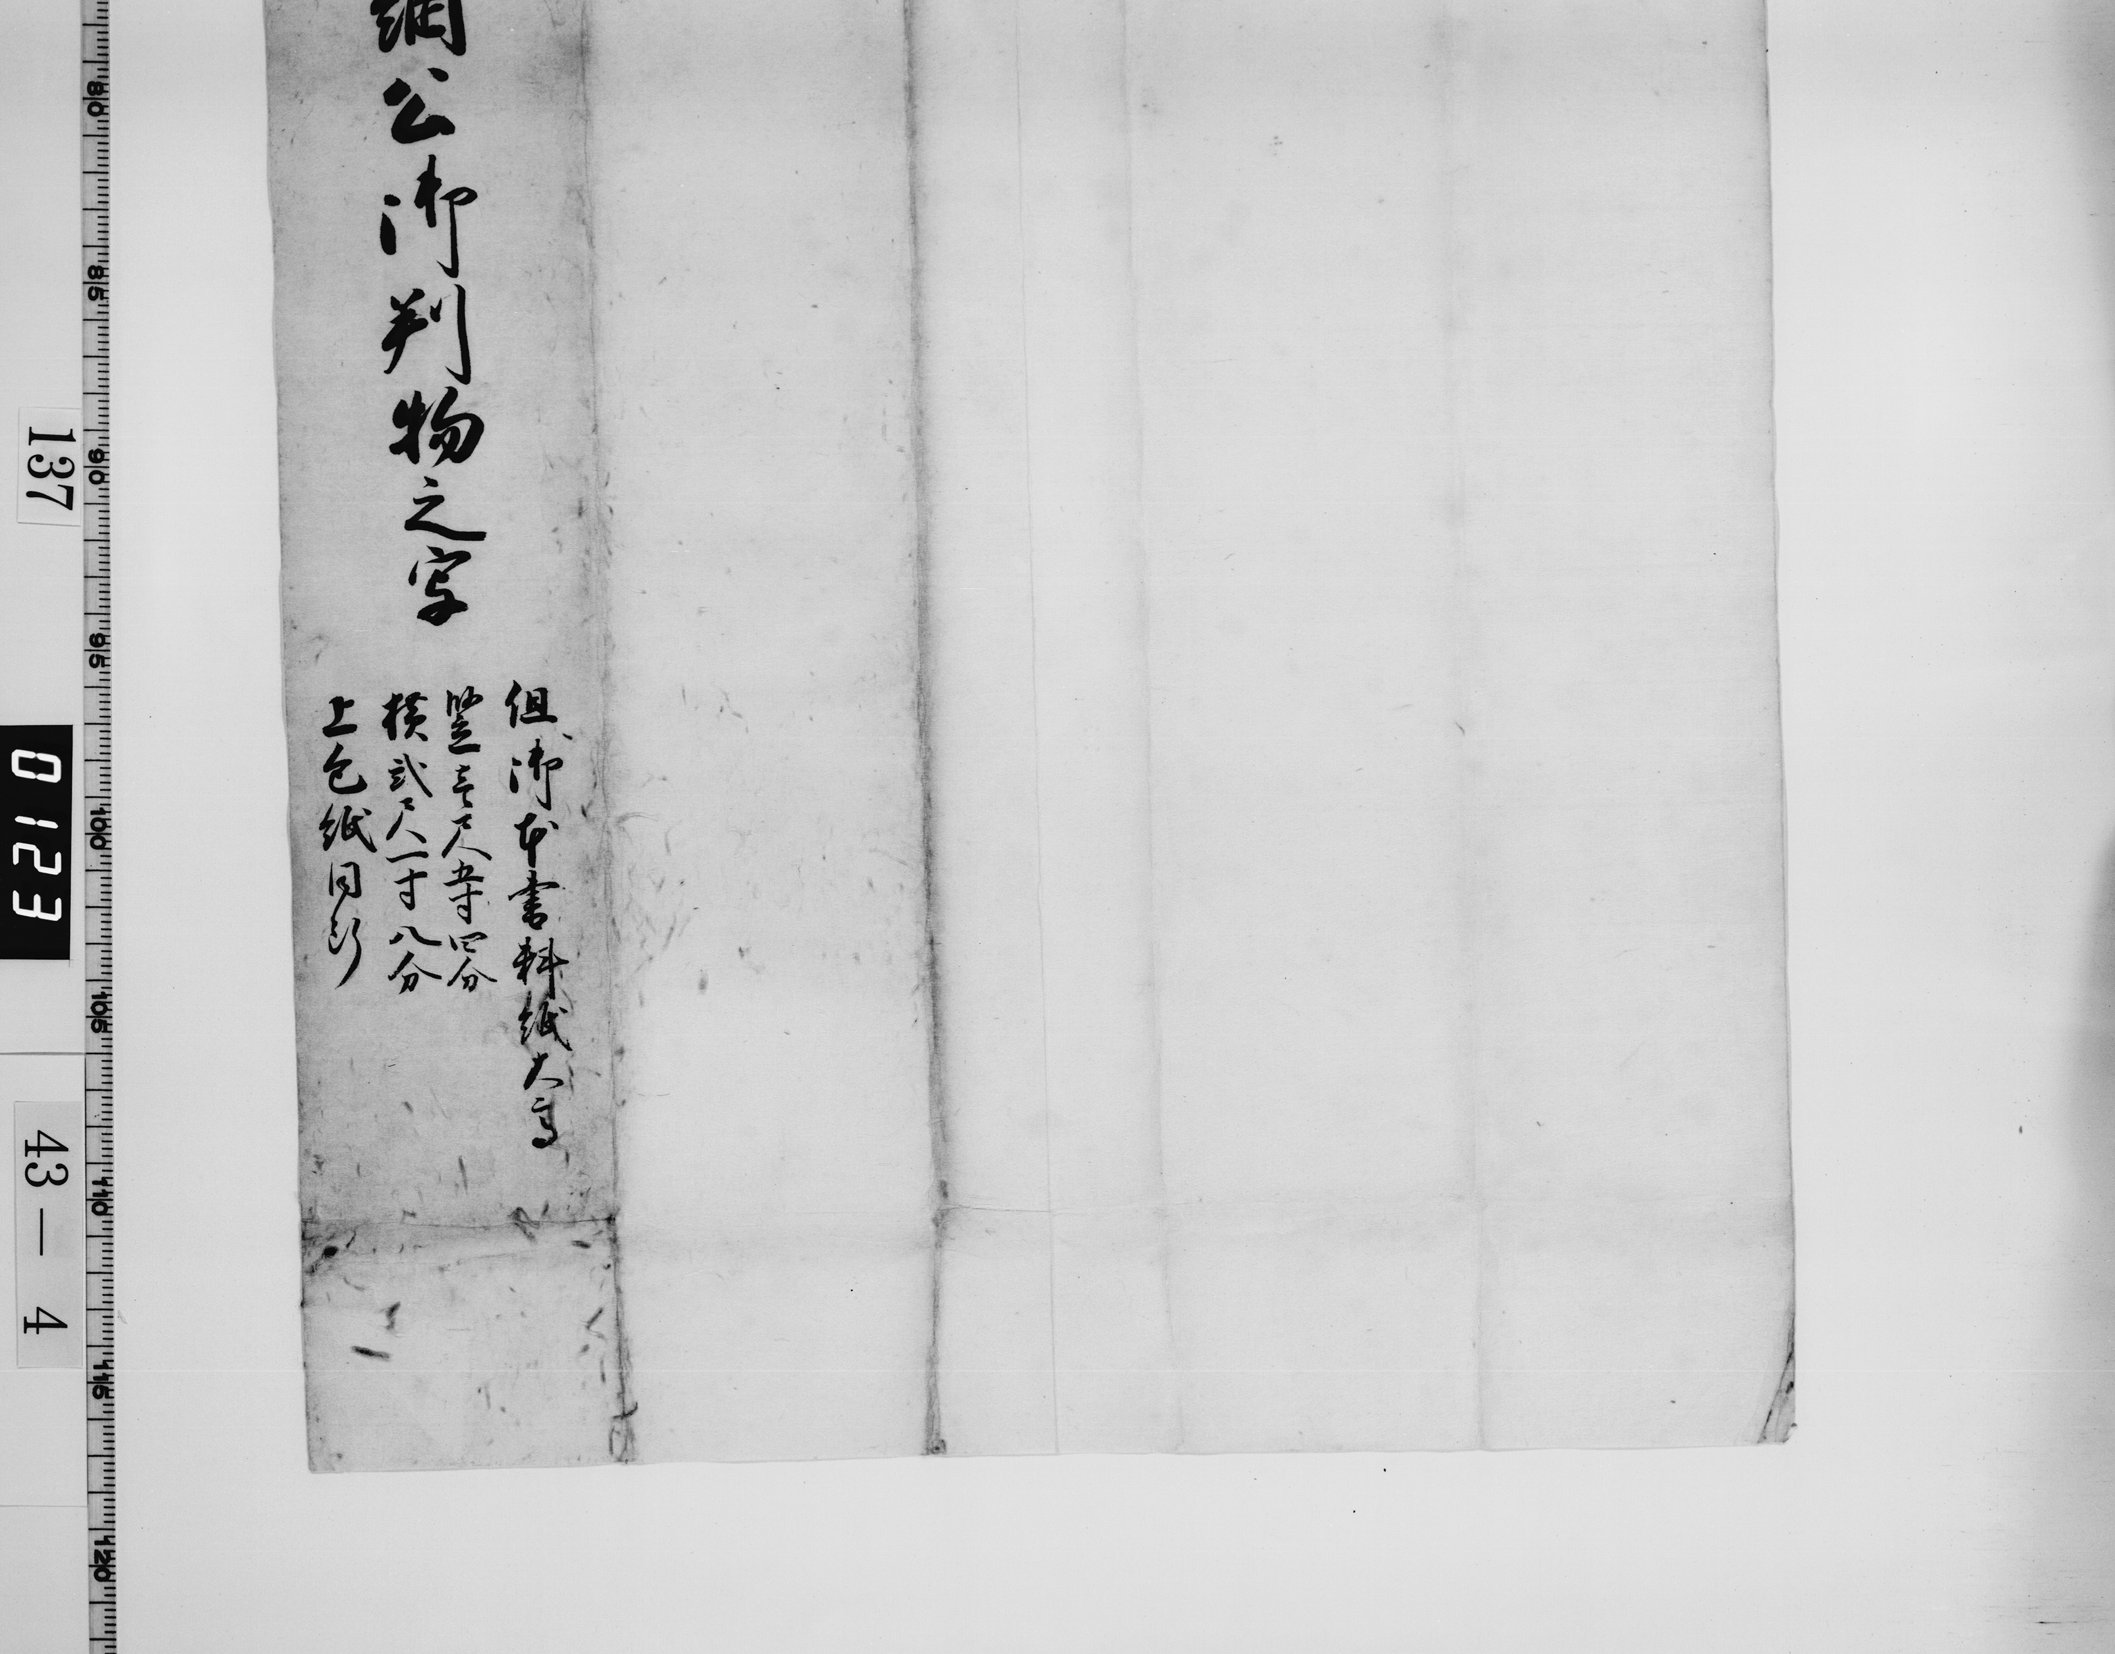 綱公御判物之写
但御本書料紙大高
竪壱尺五寸四分
横弐尺一寸八分
上包紙同断
137
0123
43－4
80
85
90
95
100
105
110
115
120